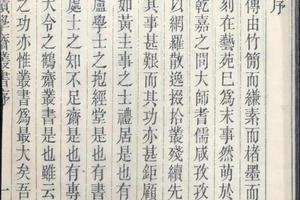 序
傳由竹簡而縑素而楮墨而
刻在藝苑巳爲末事然萌於
乾嘉之間大師耆儒咸孜孜
以網羅散逸掇拾叢殘續先
其事甚艱而其功亦甚鉅顧
如黃主事之士禮居是也有
盧學士之抱經堂是也有書
處士之知不足齋是也有專
大令之鶴齋叢書是也雖云
之功亦惟叢書爲最大矣吾
學齋叢書序 一